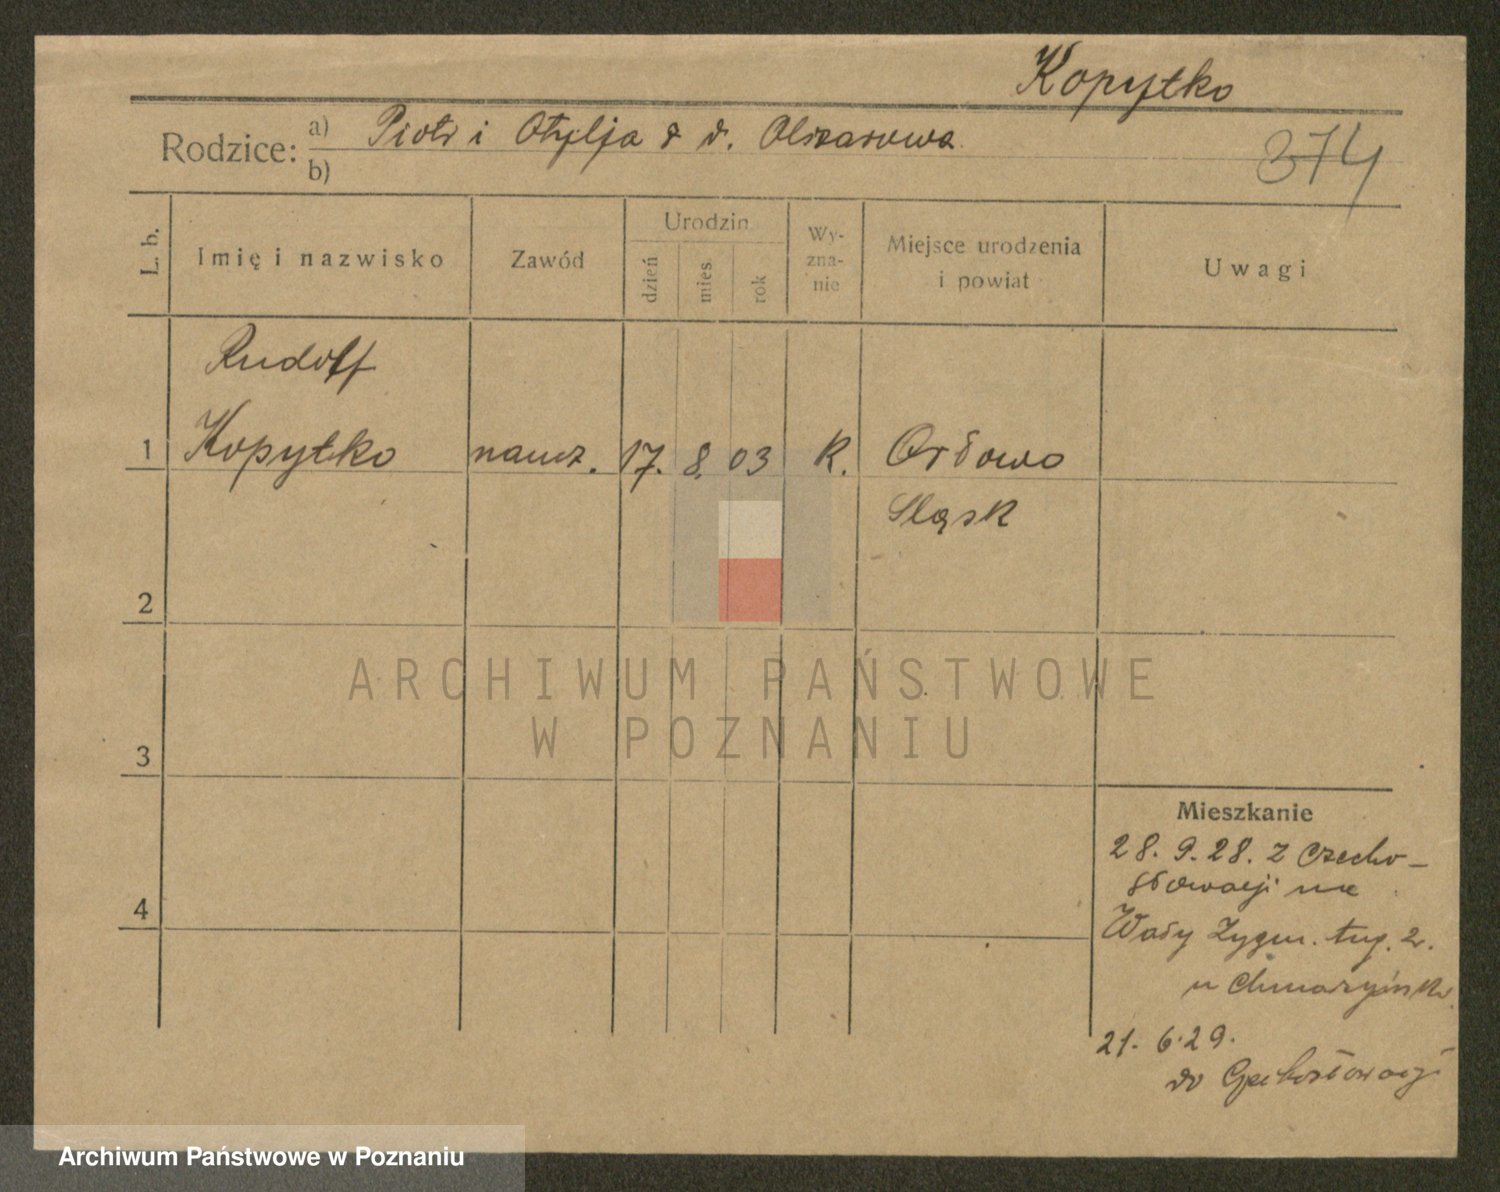 Kopytko
Rodzice: a) Piotr i Otylja z d. Olszarowa
b)
374
L. b.
Imię i nazwisko
Zawód
Urodzin
dzień
mies.
rok
Wy-
zna-
nie
Miejsce urodzenia
i powiat
Uwagi
Rudolf
1 Kopytko naucz. 17. 8. 03 R. Orłowo
Śląsk
2
3
4
ARCHIWUM PAŃSTWOWE
W POZNANIU
Mieszkanie
28. 9. 28. z Czecho-
słowacji na
Wały Zygm. Aug. 2.
u
21. 6. 29.
do Czechosłowacji
Archiwum Państwowe w Poznaniu